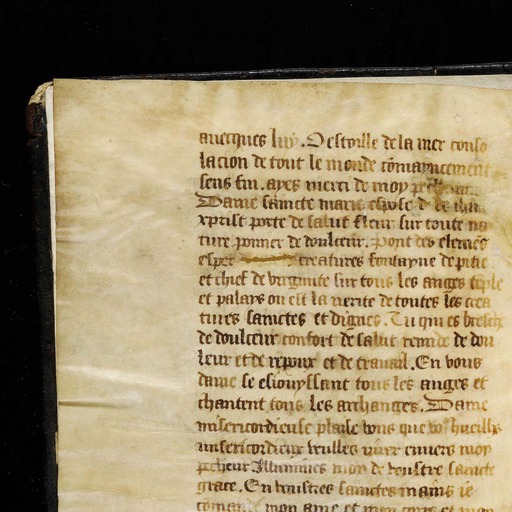 auecques luy. O estoille de la mer conso
lacion de tout le monde cōmancement
sens fin. ayes merci de moy
Dame saincte marie espose d
xprist porte de salut fleur sur toute na
ture ponner de doulceur. Pont des elemēs
esper creatures fontayne de pitie
et chief de virginite sur tous les anges tēple
et palays ou est la uerite de toutes les crea
tures sainctes et dignes. Tu qui es bresche
de doulceur confort de salut remide de dou
leur et de repoux et de trauail. En vous
dame se esiouyssant tous les anges et
chantent tous les archanges. Dame
misericordieuse plaise vous que voz hueilhs
misericordieux veulles virer enuers moy
pecheur Illumines moy de voustre saincte
grace. En voustres sainctes mains ie
comant mon ame et mon corps et mon